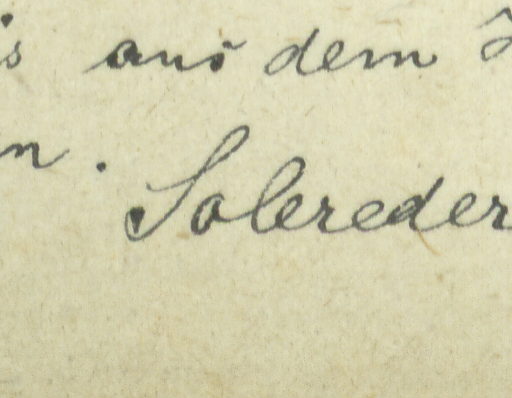 is aus dem
n. Solereder